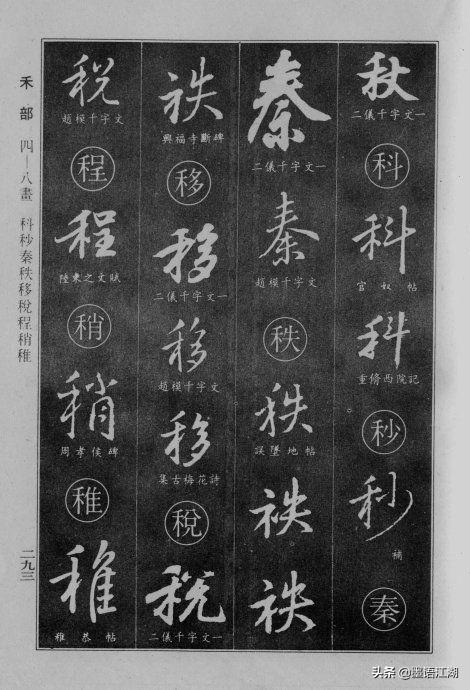 秋
二儀千字文一
科
科
官奴帖
科
重脩西院記
秒
秒
補
秦
秦
二儀千字文一
秦
趙模千字文
秩
秩
誤墮地帖
秩
秩
秩
興福寺斷碑
移
移
二儀千字文一
移
趙模千字文
移
集古梅花詩
稅
稅
二儀千字文一
稅
趙模千字文
程
程
陸柬之文賦
稍
稍
周孝侯碑
稚
稚
稚恭帖
禾部 四—八畫 科秒秦秩移稅程稍稚
二九三
头条 @墨语江湖